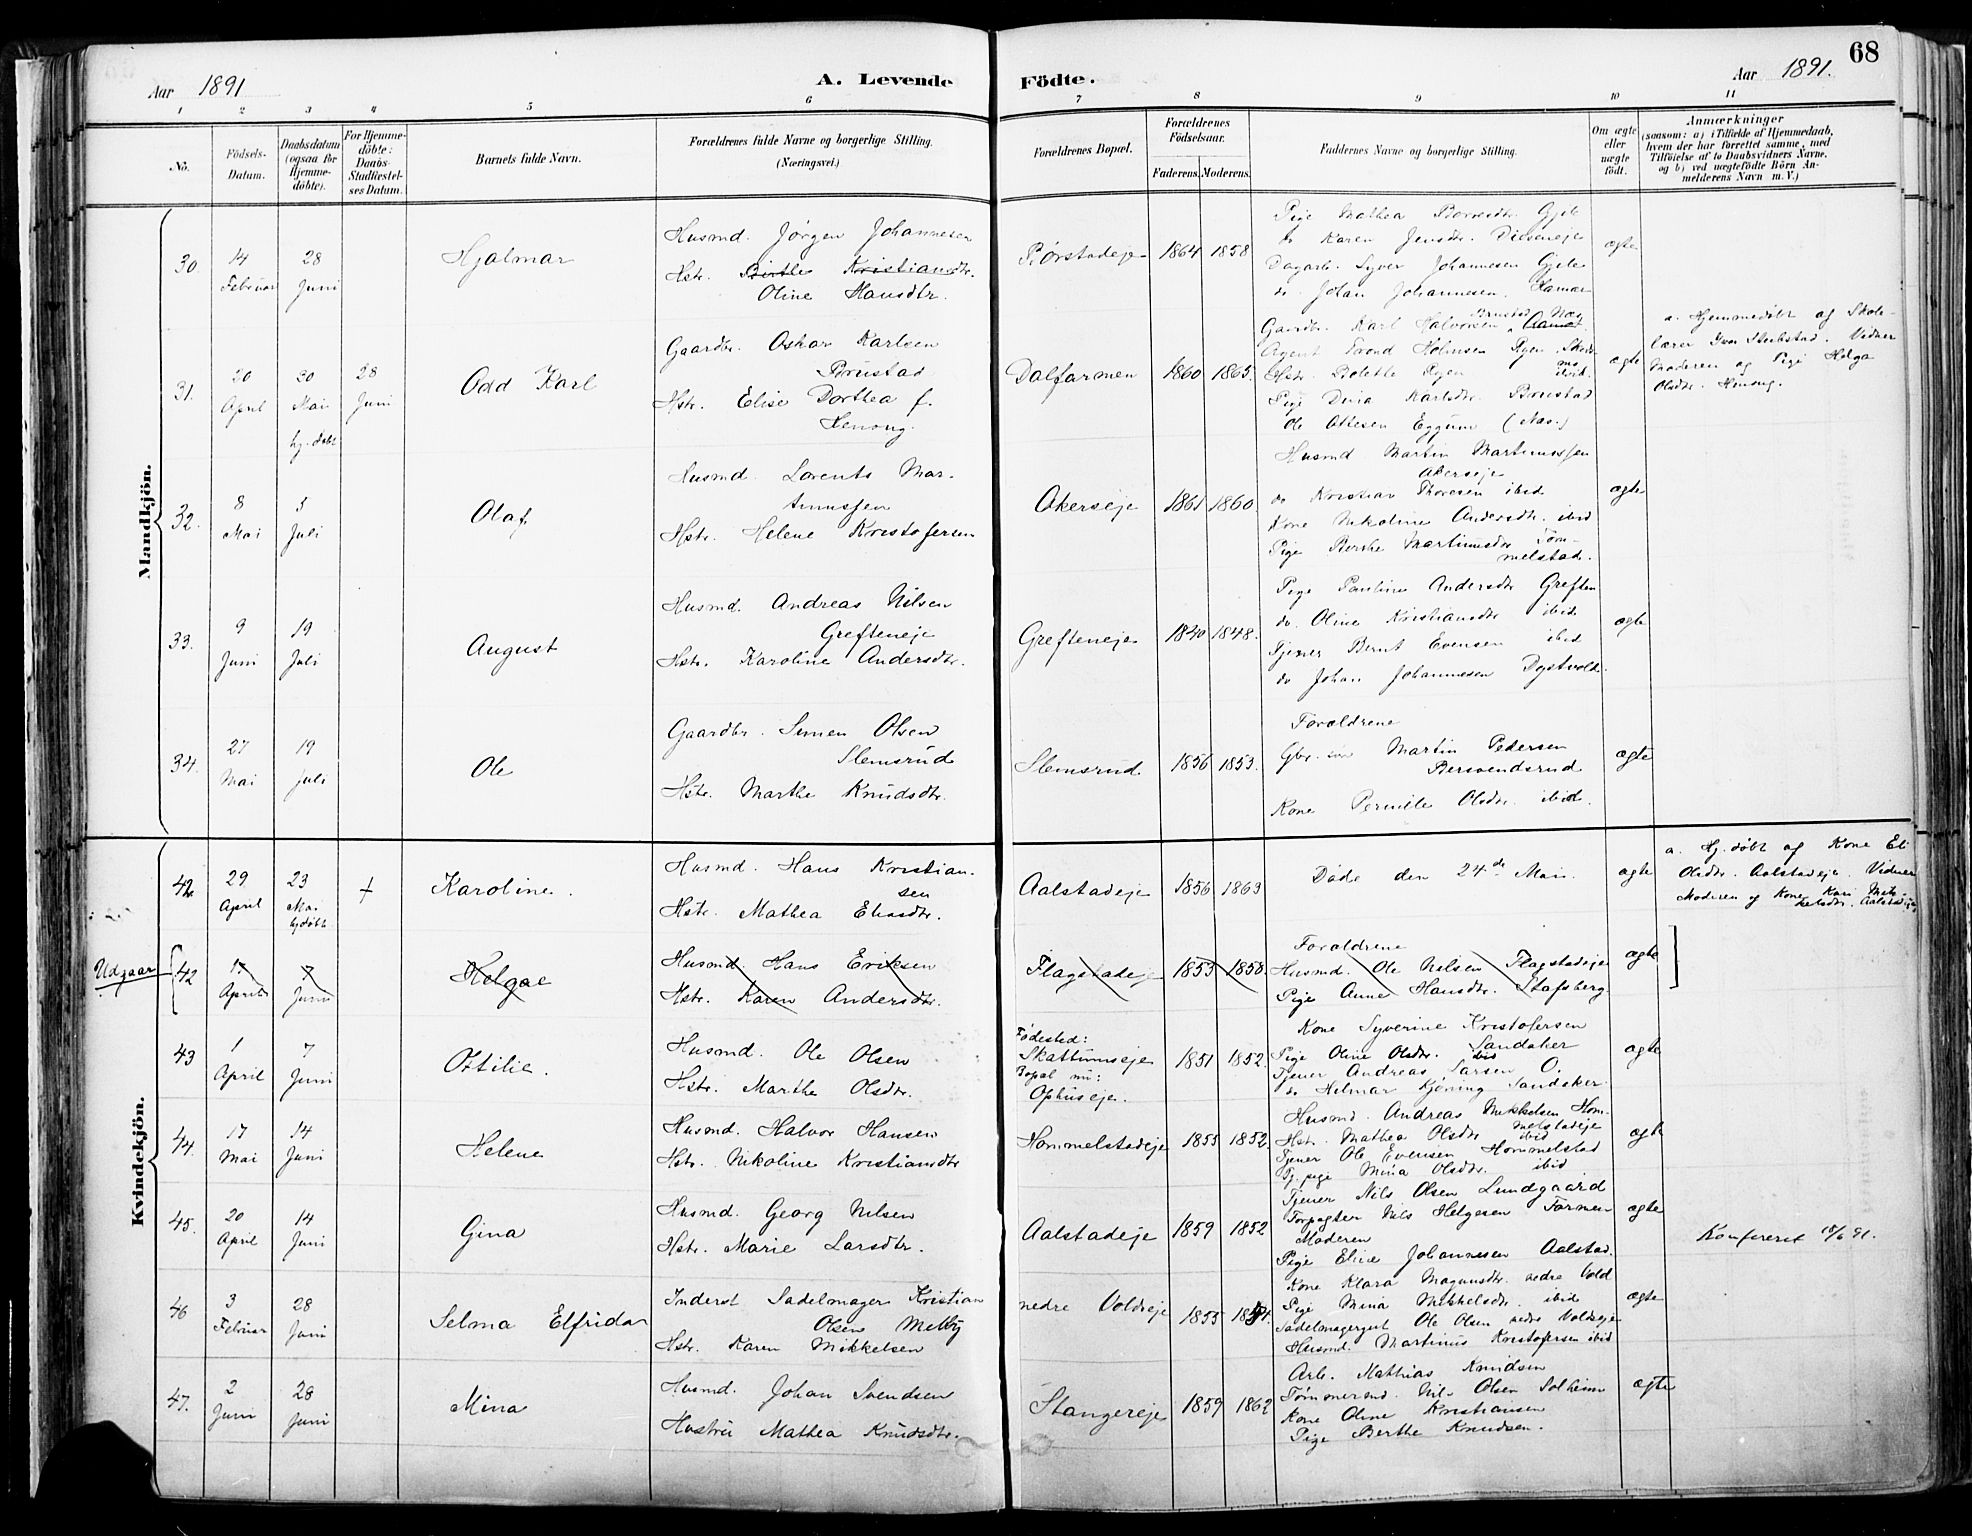 Aar 1891
A. Levende Födte.
Aar 1891.
68
1 2 3 4 5 6 7 8 9 10 11
No.
Födsels-Datum.
Daabsdatum (ogsaa for Hjemme-döbte).
For Hjemme-döbte: Daabs-Stadfæstel-ses Datum.
Barnets fulde Navn.
Forældrenes fulde Navne og borgerlige Stilling. (Næringsvei.)
Forældrenes Bopæl.
Forældrenes Födselsaar.
Faderens. Moderens.
Faddernes Navne og borgerlige Stilling.
Om ægte eller uægte födt.
Anmærkninger
(saasom: a) i Tilfælde af Hjemmedaab,
hvem der har forrettet samme, med
Tilföielse af to Daabsvidners Navne,
og b) ved uægtefödte Börn An-
melderens Navn m. V.)
Mandkjön.
30. 14 Februar 28 Juni
Hjalmar
Husmd. Jørgen Johannesen
Hstr. Birthe Kristiansdtr.
Oline Hansdtr.
Børstadeje 1864 1858
Pige Mathea Gjile
do Karen Jensdtr.
Dagarb. Syver Johannesen Gjile
do. Johan Johannesen. Hamar
ægte
31. 20 April 30 Mai hj. døbt 28 Juni
Odd Karl
Gaardbr. Oskar Karlsen
Brustad
Hstr. Elise Dorthea f.
Henong.
Dalfarmen 1860 1865.
Gaardbr. Karl Halvorsen Brustad Næs
Agent Holmsen Ryen
Hstr. Bolette Ryen
Pige Karlsdtr. Brustad
Ole Ottesen Eggum (Næs.)
ægte
a. Hjemmedøbt af Skole-
lærer Iver Vidner
Moderen og Pige Helga
Olsdtr. Henong.
32. 8 Mai 5 Juli
Olaf
Husmd. Lorents Mar-
tinussen
Hstr. Helene Kristofersen
Akerseje 1861 1860.
Husmd Martin Martinussen
Akerseje
do Kristian Thoresen ibid
Kone Nikoline Andersdtr. ibid
Pige Berthe Martinusdtr Tøm-
melstad.
ægte
33. 9 Juni 19 Juli
August
Husmd. Andreas Nilsen
Grefteneje
Hstr. Karoline Andersdtr.
Grefteneje 1840 1848.
Pige Pauline Andersdtr Greften
do. Oline Kristiansdtr ibid.
Tjener Bernt Evensen ibid
do Johan Johannesen Dystvold
ægte
34. 27 Mai 19 Juli
Ole
Gaardbr. Simen Olsen
Slemsrud
Hstr. Marthe Knudsdtr.
Slemsrud 1856 1853.
Forældrene
Gbr. Martin Pedersen
Bersvendsrud
Kone Pernille Olsdtr. ibid.
ægte
Kvindekjön.
42 29 April 23 Mai hjdøbt +
Karoline.
Husmd. Hans Kristian-
sen
Hstr. Mathea Eliasdtr.
Aalstadeje 1856 1863
Døde den 24de Mai.
ægte
a. Hj. døbt af Kone Eli
Olsdtr. Aalstadeje. Vidner
Moderen og Kone Kari Mik-
kelsdtr. Aalstadeje
Udgaar
42 17 April 7 Juni
Helga
Husmd. Hans Eriksen
Hstr. Karen Andersdtr.
Flagstadeje 1853 1850.
Forældrene
Husmd. Ole Nilsen Flagstadeje
Pige Anne Hansdtr. Stafsberg
ægte
43 1 April 7 Juni
Ottilie.
Husmd. Ole Olsen
Hstr. Marthe Olsdtr.
Fødested:
Skattumseje
Bopæl nu:
Ophuseje.
1851 1852.
Kone Syverine Kristofersen
Sandaker
Pige Oline Olsdtr. ibid
Tjener Andreas Larsen O.
do Helmar Kjöning Sandaker.
ægte
44. 17 Mai 14 Juni
Helene
Husmd. Halvor Hansen
Hstr. Nikoline Kristiansdtr
Hommelstadeje 1855 1852.
Husmd. Andreas Mikkelsen Hom-
melstadeje
Hstr. Mathea Olsdtr ibid
Tjener Ole Evensen Hommelstad
Tj. pige Mina Olsdtr. ibid
ægte
45. 20 April 14 Juni
Gina
Husmd. Georg Nilsen
Hstr. Marie Larsdtr.
Aalstadeje 1859 1852
Tjener Nils Olsen Lundgaard
Forpagter Nils Helgesen Farmen
Moderen
Pige Elise Johannesen Aalstad.
ægte
Konfereret 18/6 91.
46 3 Februar 28 Juni
Selma Elfrida
Inderst Sadelmager Kristian
Olsen Melby
Hstr. Karen Mikkelsen
nedre Voldseje 1855 1854.
Kone Klara Magnusdtr. nedre Vold
Pige Mina Mikkelsdtr. ibid
Sadelmagergut Ole Olsen nedre Voldseje
Husmd. Martinus Kristofersen ibid
ægte
47. 2 Juni 28 Juni
Mina
Husmd. Johan Svendsen
Hustru Mathea Knudsdtr.
Stangereje 1859 1862
Arb. Mathias Knudsen
Tømmermd. Nils Olsen Solheim
Kone Oline Kristiansen
Pige Berthe Knudsen.
ægte